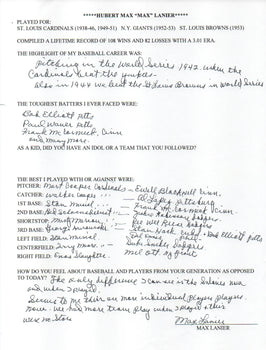 *****HUBERT MAX "MAX" LANIER*****
PLAYED FOR:
ST. LOUIS CARDINALS (1938-46, 1949-51) N.Y. GIANTS (1952-53) ST. LOUIS BROWNS (1953)
COMPILED A LIFETIME RECORD OF 108 WINS AND 82 LOSSES WITH A 3.01 ERA.
THE HIGHLIGHT OF MY BASEBALL CAREER WAS:
Pitching in the World Series 1942 when the
Cardinals beat the Yankees
Also in 1944 we beat the St Louis Browns in World Series
THE TOUGHEST BATTERS I EVER FACED WERE:
Bob Elliott Pitts
Paul Waner Pitts
Frank McCormick Cinn
and Many More
AS A KID, DID YOU HAVE AN IDOL OR A TEAM THAT YOU FOLLOWED?
THE BEST I PLAYED WITH OR AGAINST WERE:
PITCHER: Mort Cooper Cardinals - Ewell Blackwell Cinn.
CATCHER: Walker Cooper - Al Lopez Pittsburg
1ST BASE: Stan Musial - Frank McCormick Cinn
2ND BASE: Red Schoendienst - Jackie Robinson Dodgers
SHORTSTOP: Marty Marion - Pee Wee Reese Dodgers
3RD BASE: George Kurowski - Stan Hack Cubs - Bob Elliott Pitts
LEFT FIELD: Stan Musial
CENTERFIELD: Terry Moore - Duke Snider Dodgers
RIGHT FIELD: Enos Slaughter - Mel Ott NY Giants
HOW DO YOU FEEL ABOUT BASEBALL AND PLAYERS FROM YOUR GENERATION AS OPPOSED
TO TODAY? The only difference I can see is the Salaries now
and when I played.
Seems to me there are more individual players
now. We had more team play when I played
were
Max Lanier
MAX LANIER